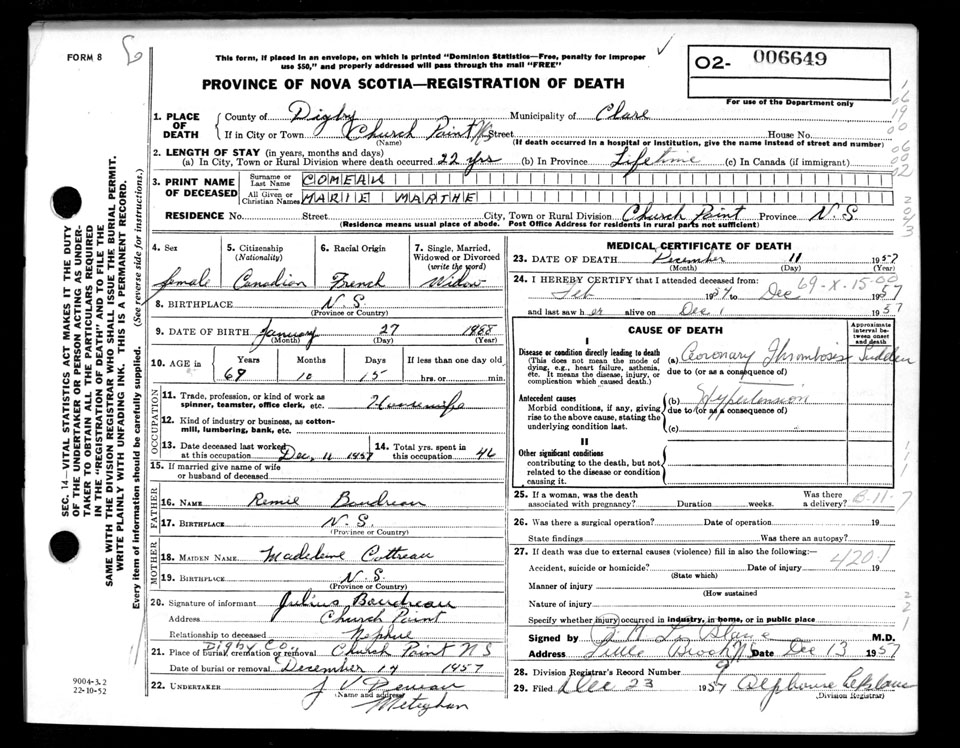 FORM 8
This form, if placed in an envelope, on which is printed "Dominion Statistics—Free, penalty for improper
use $50," and properly addressed will pass through the mail "FREE"
02- 006649
For use of the Department only
PROVINCE OF NOVA SCOTIA—REGISTRATION OF DEATH
SEC. 14—VITAL STATISTICS ACT MAKES IT THE DUTY
OF THE UNDERTAKER OR PERSON ACTING AS UNDER-
TAKER TO OBTAIN ALL THE PARTICULARS REQUIRED
IN THE "REGISTRATION OF DEATH" AND TO FILE THE
SAME WITH THE DIVISION REGISTRAR WHO SHALL ISSUE THE BURIAL PERMIT.
WRITE PLAINLY WITH UNFADING INK. THIS IS A PERMANENT RECORD.
Every item of information should be carefully supplied. (See reverse side for instructions.)
1. PLACE OF DEATH
County of Digby Municipality of Clare
If in City or Town Church Point NS Street House No.
(Name) (If death occurred in a hospital or institution, give the name instead of street and number)
2. LENGTH OF STAY (in years, months and days)
(a) In City, Town or Rural Division where death occurred 22 yrs (b) In Province Lifetime (c) In Canada (if immigrant)
3. PRINT NAME OF DECEASED
Surname or Last Name COMEAU
All Given or Christian Names MARIE MARTHE
RESIDENCE No. Street City, Town or Rural Division Church Point Province N.S.
(Residence means usual place of abode. Post Office Address for residents in rural parts not sufficient)
4. Sex female
5. Citizenship (Nationality) Canadian
6. Racial Origin French
7. Single, Married, Widowed or Divorced (write the word) Widow
8. BIRTHPLACE N.S.
(Province or Country)
9. DATE OF BIRTH January 27 1888
(Month) (Day) (Year)
10. AGE in Years Months Days If less than one day old
69 10 15 hrs. or min.
OCCUPATION
11. Trade, profession, or kind of work as
spinner, teamster, office clerk, etc. Housewife
12. Kind of industry or business, as cotton-
mill, lumbering, bank, etc.
13. Date deceased last worked
at this occupation Dec. 11 1957
14. Total yrs. spent in
this occupation 46
15. If married give name of wife
or husband of deceased
FATHER
16. NAME Remie Boudreau
17. BIRTHPLACE N.S.
(Province or Country)
MOTHER
18. MAIDEN NAME Madeleine Cottreau
19. BIRTHPLACE N.S.
(Province or Country)
20. Signature of informant Julius Boudreau
Address Church Point
Relationship to deceased Nephue
21. Place of burial, cremation or removal Digby Co. Church Point N S
Date of burial or removal December 14 1957
22. UNDERTAKER J V
(Name and address) Meteghan
9004-3.2
22-10-52
MEDICAL CERTIFICATE OF DEATH
23. DATE OF DEATH December 11 1957
(Month) (Day) (Year)
24. I HEREBY CERTIFY that I attended deceased from: 69-X-15-00
Feb 1957 to Dec 1957
and last saw her alive on Dec 1 1957
CAUSE OF DEATH
Approximate interval between onset and death
I
Disease or condition directly leading to death
(This does not mean the mode of
dying, e.g., heart failure, asthenia,
etc. It means the disease, injury, or
complication which caused death.)
(a) Coronary Thrombosis Sudden
due to (or as a consequence of)
Antecedent causes
Morbid conditions, if any, giving
rise to the above cause, stating the
underlying condition last.
(b) Hypertension
due to (or as a consequence of)
(c)
II
Other significant conditions
contributing to the death, but not
related to the disease or condition
causing it.
25. If a woman, was the death
associated with pregnancy? Duration weeks. Was there a delivery? B-11-7
26. Was there a surgical operation? Date of operation 19
State findings Was there an autopsy?
27. If death was due to external causes (violence) fill in also the following:—
Accident, suicide or homicide? Date of injury 19
420.1
(State which)
Manner of injury
(How sustained)
Nature of injury
Specify whether injury occurred in industry, in home, or in public place
Signed by M.D.
Address Little Brook NS Date Dec 13 1957
28. Division Registrar's Record Number 9
29. Filed Dec 23 1957 Alphonse
(Division Registrar)